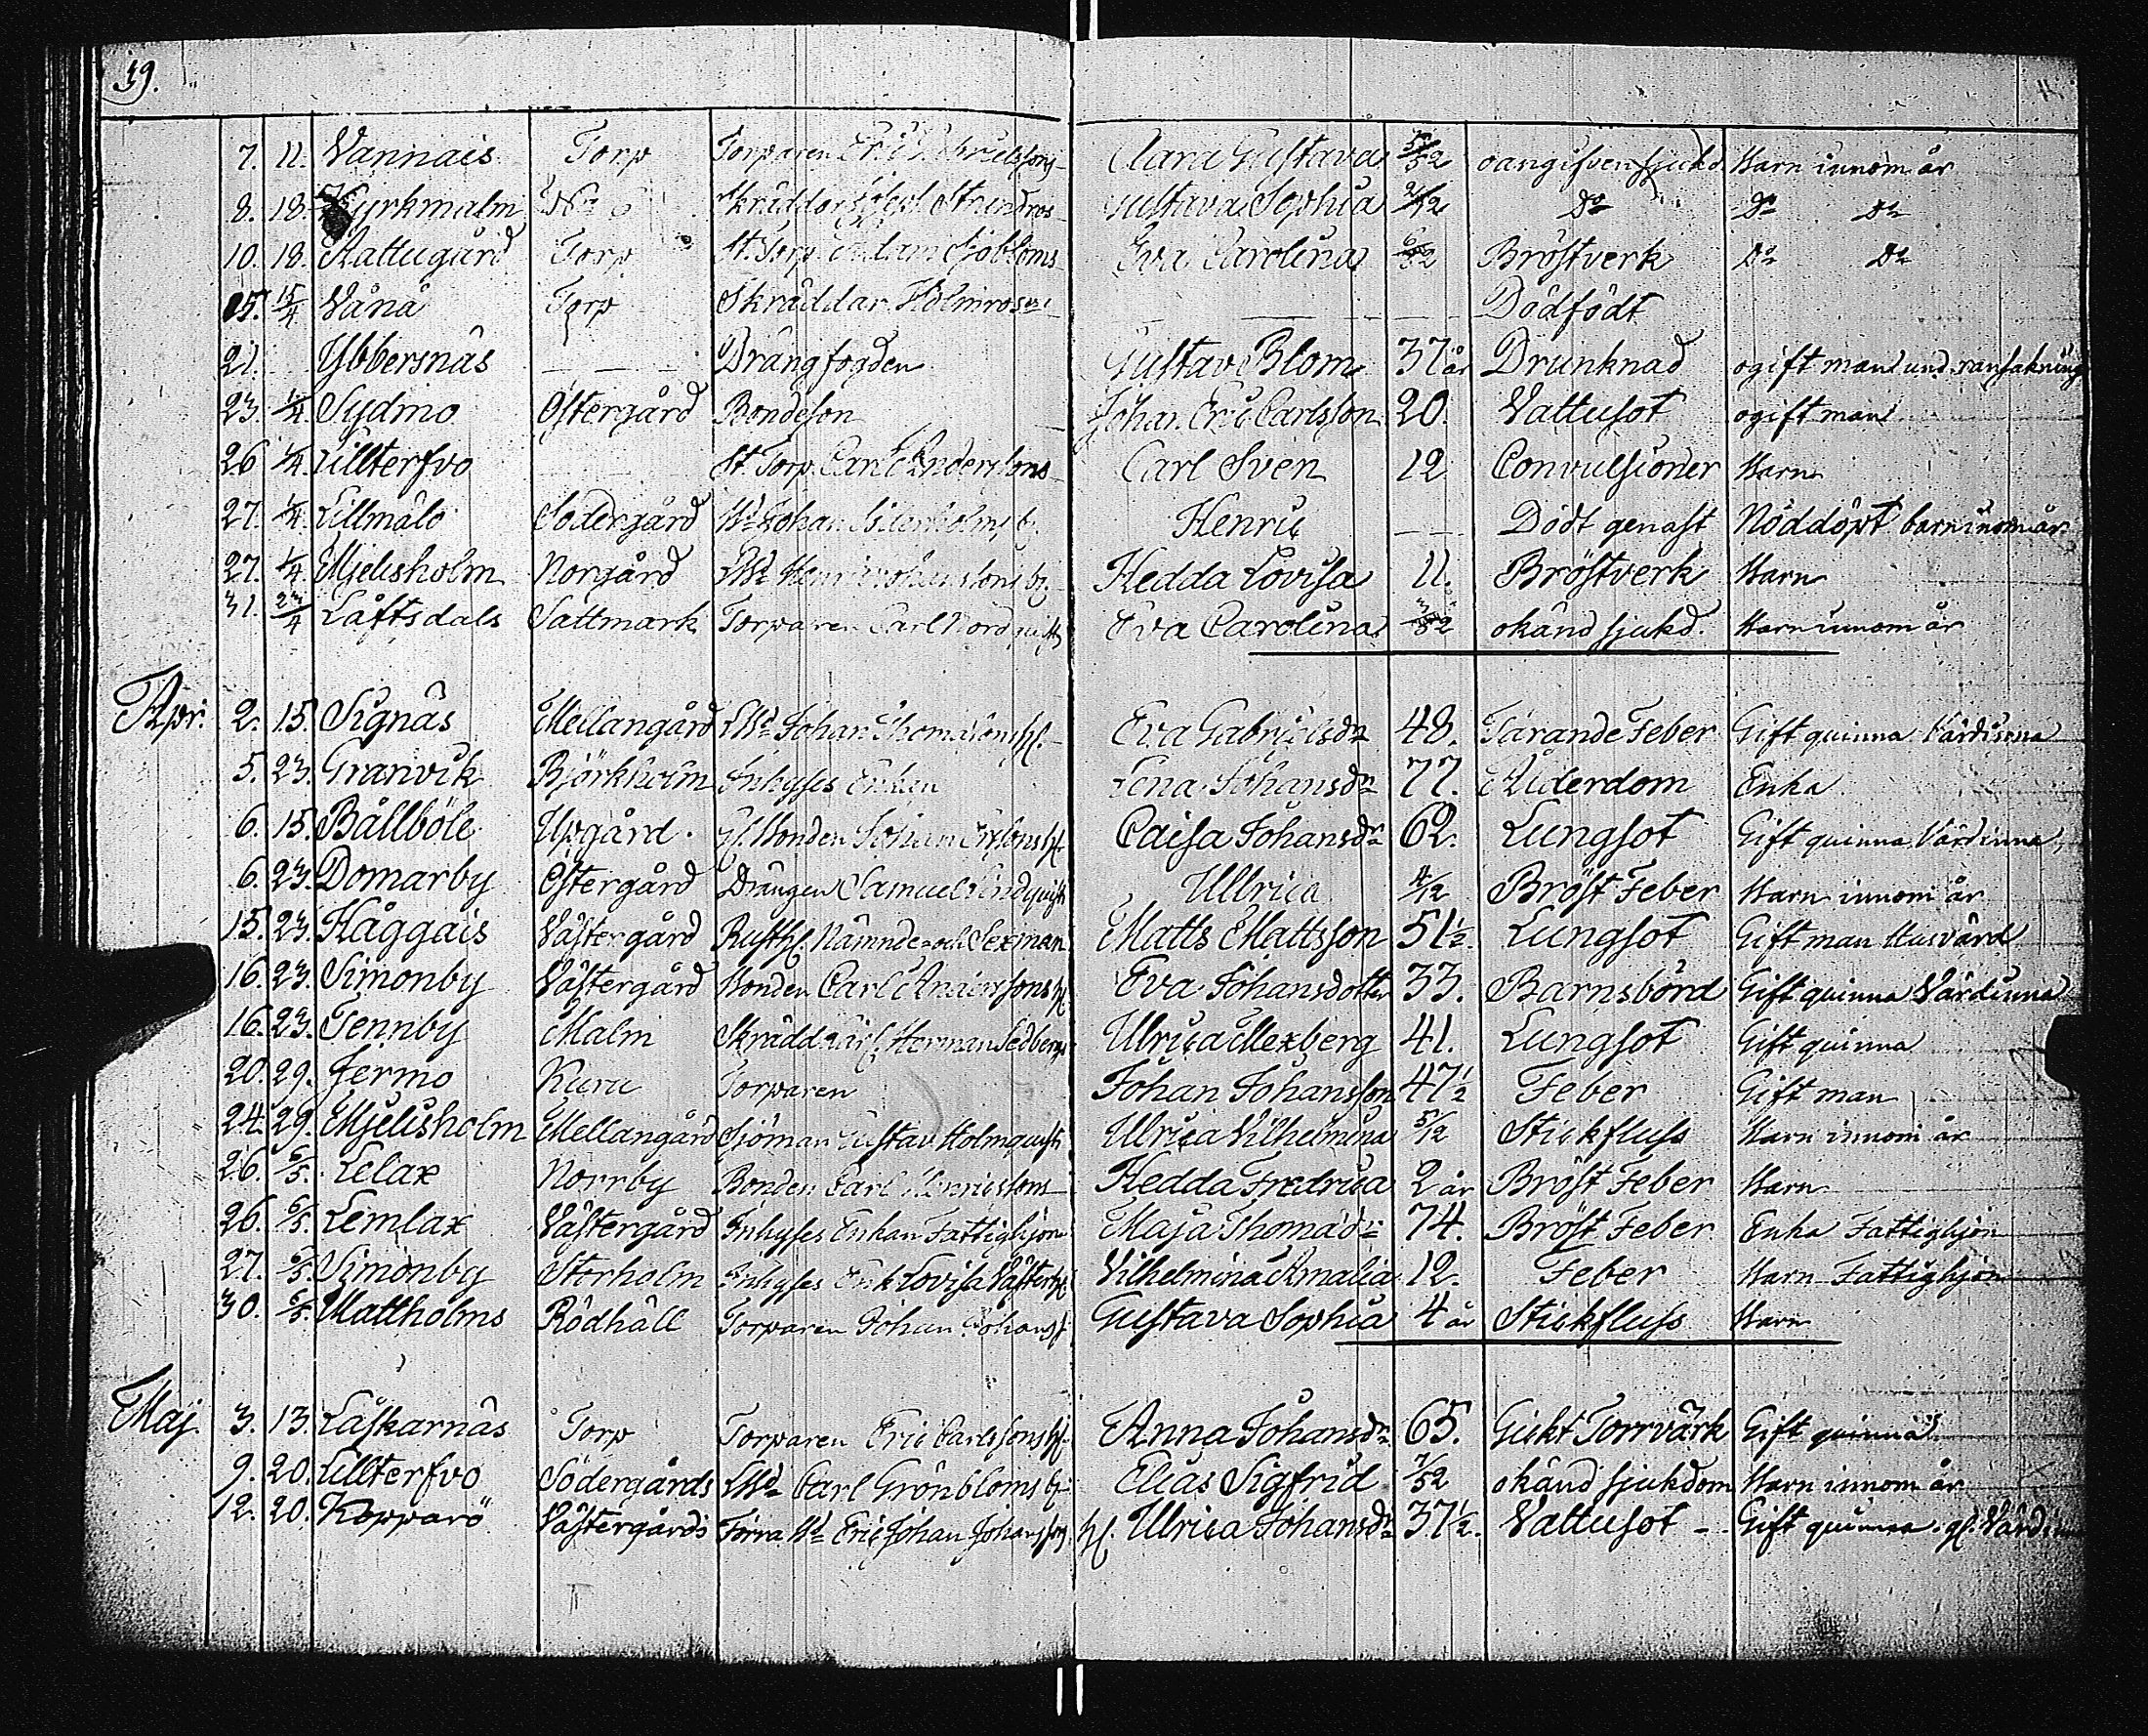 39.
7. 11. Vannais Torp Torparen Clara Gustava 5/52 oangifven sjukd. Barn innom år
8. 18. Kyrkmalm Skräddar Gustava Sophia 2/12 Do Do Do
10. 18. Kattugård Torp St. Torp. Adam Sjöbloms Eva Carolina 6/52 Bröstverk Do Do
15. 15/4 Vånå Torp Skräddar Holmros — — — Dödfödt
21. Ybbersnäs — — Drängfogden Gustav Blom 37 år Drunknad ogift man und. ransakning
23. 1/4. Sydmo Östergård Bondeson Johan Eric Carlsson 20. Vattusot ogift man
26 1/4. Lillterfvo — — St. Torp. Carl Anderssons Carl Sven 12 Convulsioner Barn
27. 1/4. Lillmälö Södergård Johan b. Henric — — Dödt genast Nöddöpt barn inom år
27. 1/4. Mjelisholm Norgård Lbd Henric Johanssons b. Hedda Lovisa 11. Bröstverk Barn
31. 23/4 Låftsdals Sattmark Torparen Carl Nordqvists Eva Carolina 3/52 okänd sjukd. Barn innom år
Apr. 2. 15. Signäs Mellangård Lbd Johan Thomassons h. Eva Gabrielsdr 48. Tärande Feber Gift quinna Värdinna
5. 23. Granvik Björkholm Inhyses Enkan Lena Johansdr 77. Ålderdom Enka
6. 15. Bällböle Upgård. Bonden Johan h. Caisa Johansdr 62. Lungsot Gift quinna Värdinna
6. 23. Domarby Östergård Drängen Samuel Lindqvists Ullrica 4/12 Bröst Feber Barn innom år
15. 23. Haggais Västergård Rusth. Nämnde- och Sexman Matts Mattsson 51 1/2. Lungsot Gift man Husvärd
16. 23. Simonby Västergård Bonden Carl Anderssons h. Eva Johansdotter 33. Barnsbörd Gift quinna Värdinna
16. 23. Tennby Malm Skräddar Herman Sedbergs Ulrica Mexberg 41. Lungsot Gift quinna
20. 29. Jermo Kuru Torparen Johan Johansson 47 1/2 Feber Gift man
24. 29. Mjelisholm Mellangård Sjöman Gustav Holmqvists Ulrica Vilhelmina 5/12 Stickfluss Barn innom år
26. 6/5. Lelax Norrby Bonden Carl Henricssons Hedda Fredrica 2 år Bröst Feber Barn
26. 6/5. Lemlax Västergård Inhyses Enkan Fattighjon Maja Thomasdr 74. Bröst Feber Enka Fattighjon
27. 6/5. Simonby Storholm Inhyses Enk. Lovisa Vilhelmina Amalia 12. Feber Barn Fattighjon
30. 6/5. Mattholms Rödhäll Torparen Johan Johanss. Gustava Sophia 4 år Stickfluss Barn
Maj. 3. 13. Laskarnäs Torp Torparen Eric Carlssons h. Anna Johansdr 65. Gickt Torrvärk Gift quinna
9. 20. Lillterfvo Södergårds Lbd Carl Grönbloms b. Elias Sigfrid 7/52 okänd sjukdom Barn innom år
12. 20. Kopparö Västergårds Förra Bd Eric Johan Johanssons h. Ulrica Johansdr 37 1/2. Vattusot — Gift quinna. gl. Värd.